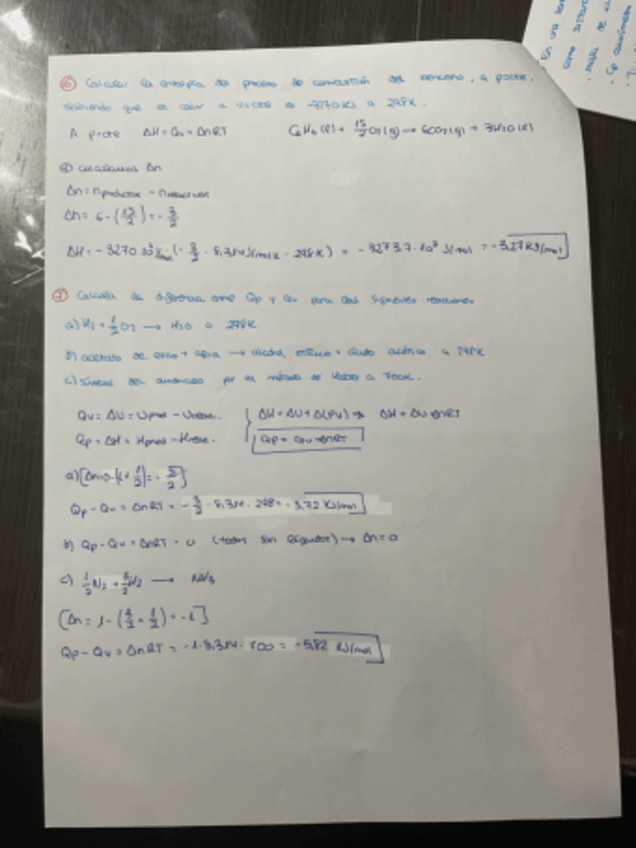 ⑥ Calcular la entalpia del proceso de combustión del benceno, a pcte,
sabiendo que el calor a V=cte es -3270 KJ a 298K.
A pcte ΔH = Qv + ΔnRT C6H6(l) + 15/2 O2(g) → 6CO2(g) + 3H2O(l)
Calculamos Δn
Δn = nproductos - nreactivos
Δn = 6 - (15/2) = - 3/2
ΔH = - 3270·10³ J/mol (- 3/2 · 8,314 J/molK · 298K) = - 3273,7·10³ J/mol = - 3,27 KJ/mol
⑦ Calcula la diferencia entre Qp y Qv para las siguientes reacciones
a) H2 + 1/2 O2 → H2O a 298K
b) acetato de etilo + agua → alcohol etílico + ácido acético a 298K
c) síntesis del amoniaco por el método de Haber a 700K.
Qv = ΔU = Uprod - Ureac. ΔH = ΔU + Δ(PV) → ΔH = ΔU + ΔnRT
Qp = ΔH = Hprod - Hreac. Qp = Qv + ΔnRT
a) [Δn = 0 - (1 + 1/2) = - 3/2]
Qp - Qv = ΔnRT = - 3/2 · 8,314 · 298 = - 3,72 KJ/mol
b) Qp - Qv = ΔnRT = 0 (todos son líquidos) → Δn = 0
c) 1/2 N2 + 3/2 H2 → NH3
[Δn = 1 - (3/2 + 1/2) = -1]
Qp - Qv = ΔnRT = -1 · 8,314 · 700 = - 5,82 KJ/mol
En una
como